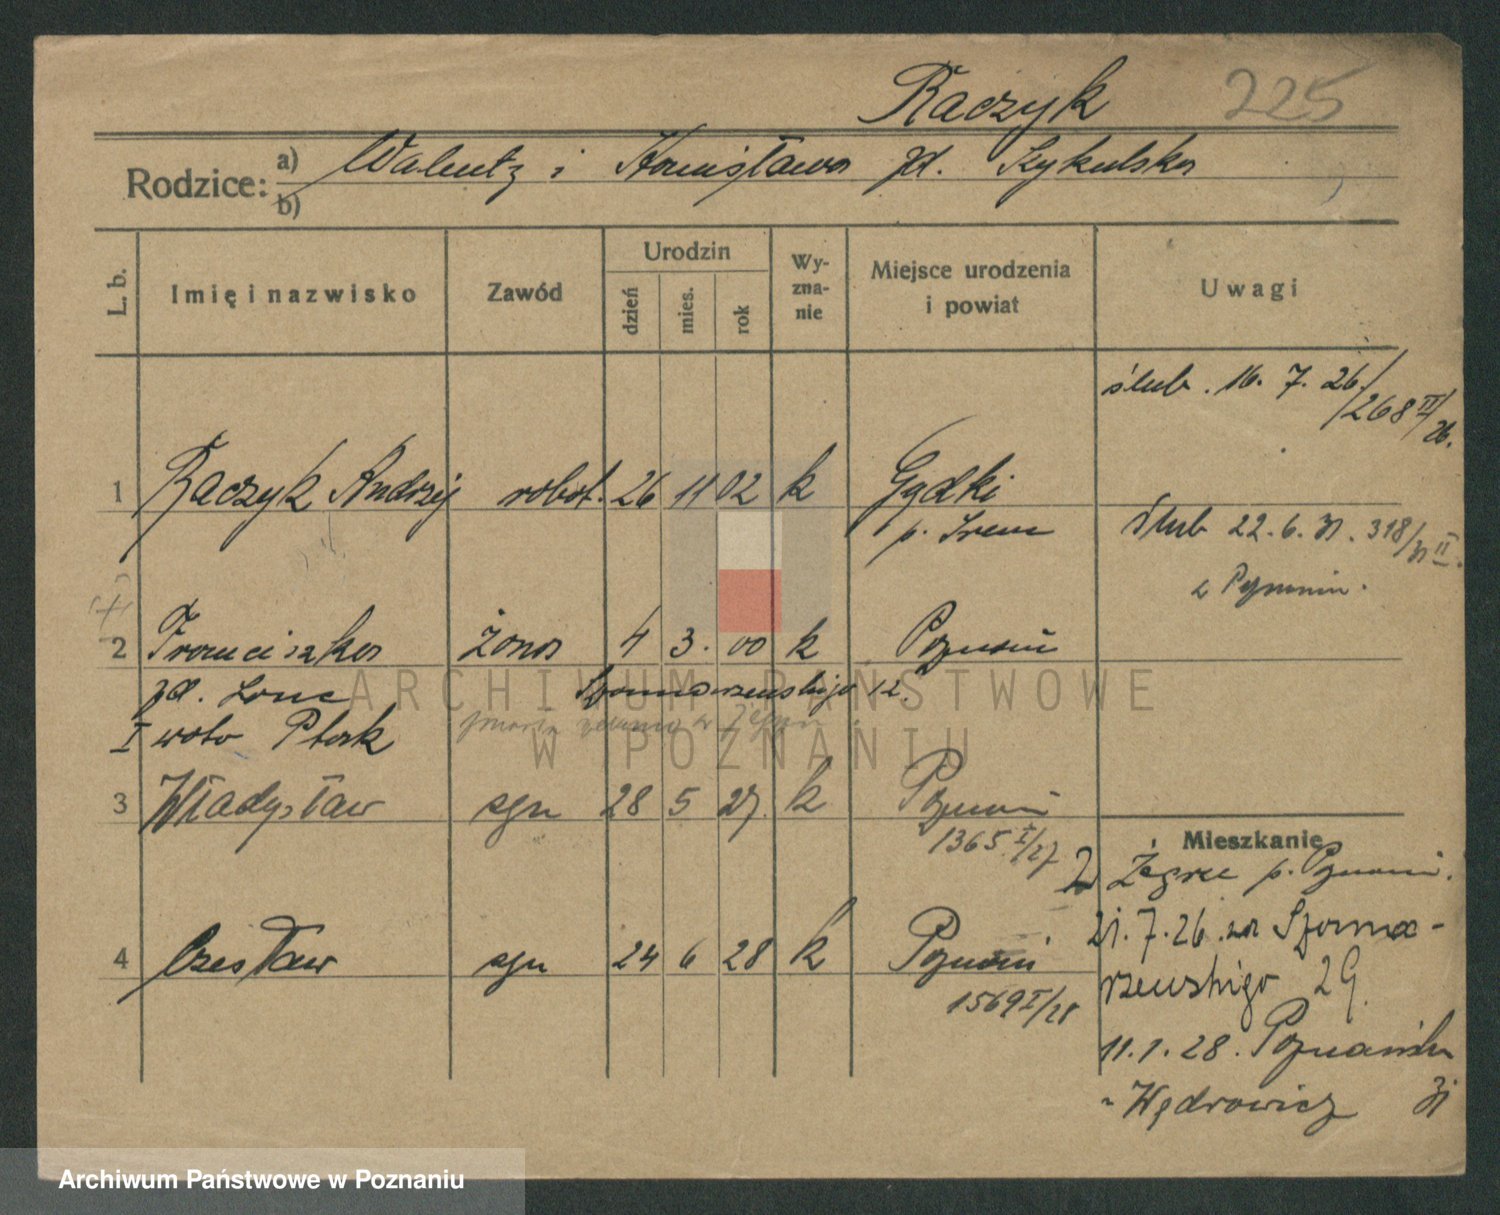 Raczyk 225
Rodzice: a) b) Walenty i Stanisława zd. Szykulska
L. b. Imię i nazwisko Zawód Urodzin dzień mies. rok Wyznanie Miejsce urodzenia i powiat Uwagi
ślub. 16. 7. 26/268 II/26.
1 Raczyk Andrzej robot. 26 11 02 k Gądki
p. Śrem
Ślub 22. 6. 31. 318/31 II.
w
2 Franciszka żona 4 3. 00 k Poznań
zd. Szamarzewskiego 12.
I voto Ptak
zmarła
3 Władysław syn 28 5 27. k Poznań
1365 I/27
Mieszkanie
Z Żegrze p. Poznań.
21. 7. 26. na Szama-
4 Czesław syn 24 6 28 k Poznań
rzewskiego 29.
1569 I/28
11. 1. 28. Poznańska
Wędrowicz 31
ARCHIWUM PAŃSTWOWE
W POZNANIU
Archiwum Państwowe w Poznaniu